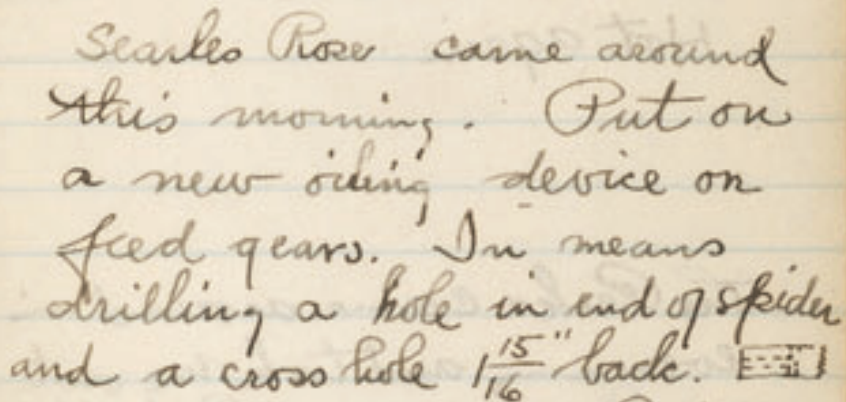 Searles Rose came around
this morning. Put on
a new oiling device on
feed gears. In means
drilling a hole in end of spider
and a cross hole 1 15/16" back.